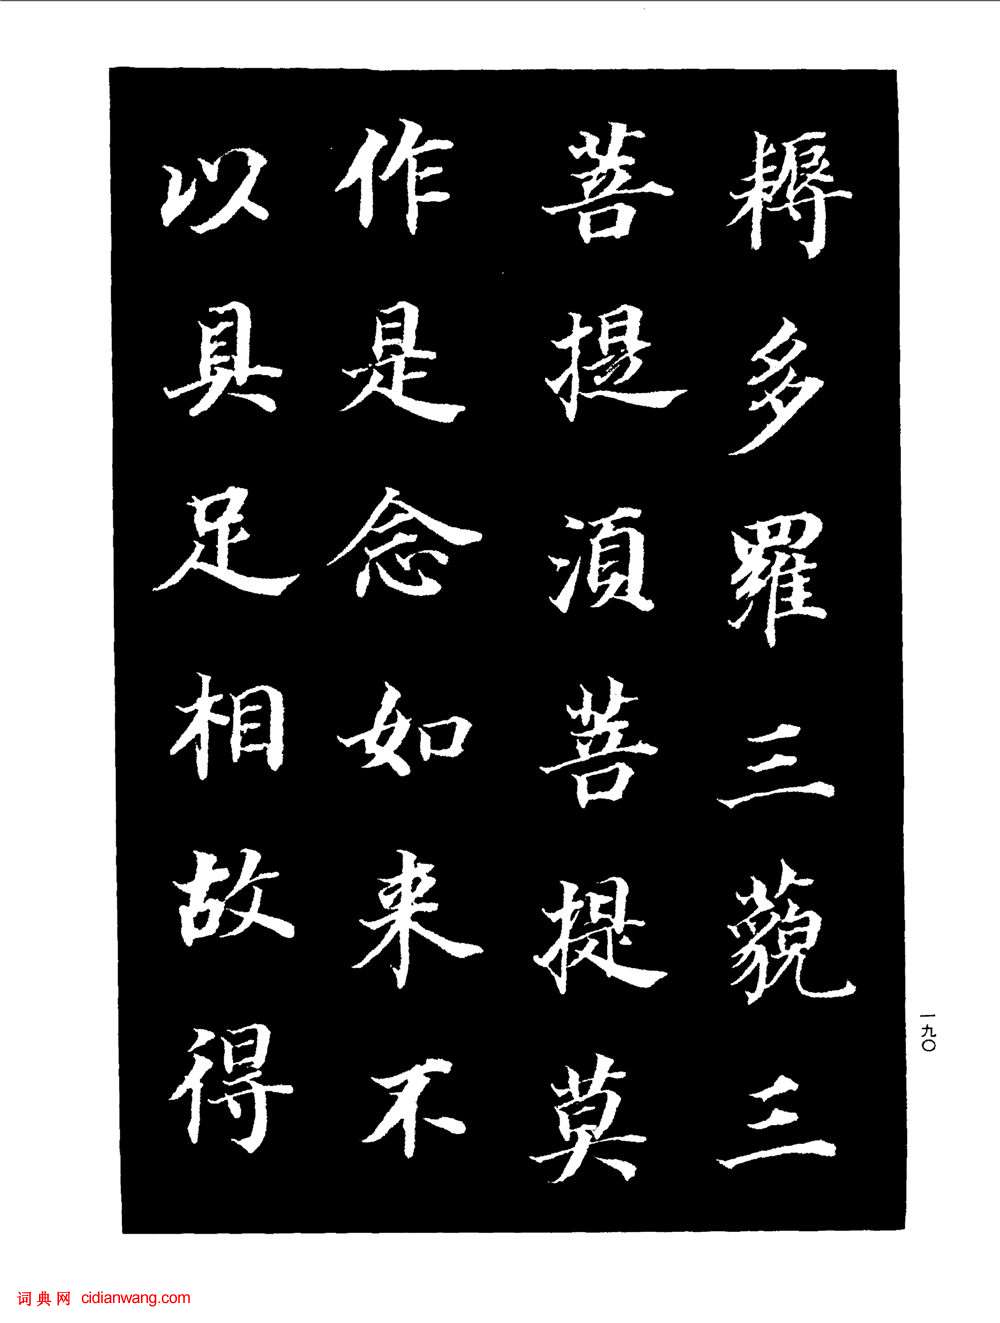 耨多羅三藐三
菩提須菩提莫
作是念如来不
以具足相故得
一九〇
词典网 cidianwang.com